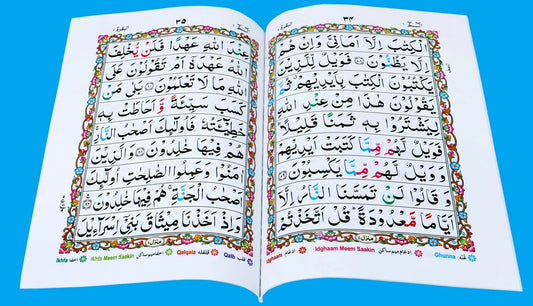 ٣٤
الْكِتٰبَ اِلَّاۤ اَمَانِیَّ وَاِنْ هُمْ
اِلَّا یَظُنُّوْنَ ۝ فَوَیْلٌ لِّلَّذِیْنَ
یَكْتُبُوْنَ الْكِتٰبَ بِاَیْدِیْهِمْ ثُمَّ
یَقُوْلُوْنَ هٰذَا مِنْ عِنْدِ اللّٰهِ
لِیَشْتَرُوْا بِهٖ ثَمَنًا قَلِیْلًا
فَوَیْلٌ لَّهُمْ مِّمَّا كَتَبَتْ اَیْدِیْهِمْ
وَوَیْلٌ لَّهُمْ مِّمَّا یَكْسِبُوْنَ ۝
وَقَالُوْا لَنْ تَمَسَّنَا النَّارُ اِلَّاۤ
اَیَّامًا مَّعْدُوْدَةً قُلْ اَتَّخَذْتُمْ
منزل ١
Ghunna غنه Idghaam Meem Saakin ادغام میم ساکن Idghaam ادغام
٣٥
عِنْدَ اللّٰهِ عَهْدًا فَلَنْ یُّخْلِفَ
اللّٰهُ عَهْدَهٗۤ اَمْ تَقُوْلُوْنَ عَلَى
اللّٰهِ مَا لَا تَعْلَمُوْنَ ۝ بَلٰى مَنْ
كَسَبَ سَیِّئَةً وَّاَحَاطَتْ بِهٖ
خَطِیْٓئَتُهٗ فَاُولٰٓئِكَ اَصْحٰبُ النَّارِ
هُمْ فِیْهَا خٰلِدُوْنَ ۝ وَالَّذِیْنَ
اٰمَنُوْا وَعَمِلُوا الصّٰلِحٰتِ اُولٰٓئِكَ
اَصْحٰبُ الْجَنَّةِ هُمْ فِیْهَا خٰلِدُوْنَ ۝
وَاِذْ اَخَذْنَا مِیْثَاقَ بَنِیْۤ اِسْرَآءِیْلَ
منزل ١
Qalb قلب Qalqala قلقله Ikhfa Meem Saakin اخفا میم ساکن Ikhfa اخفا